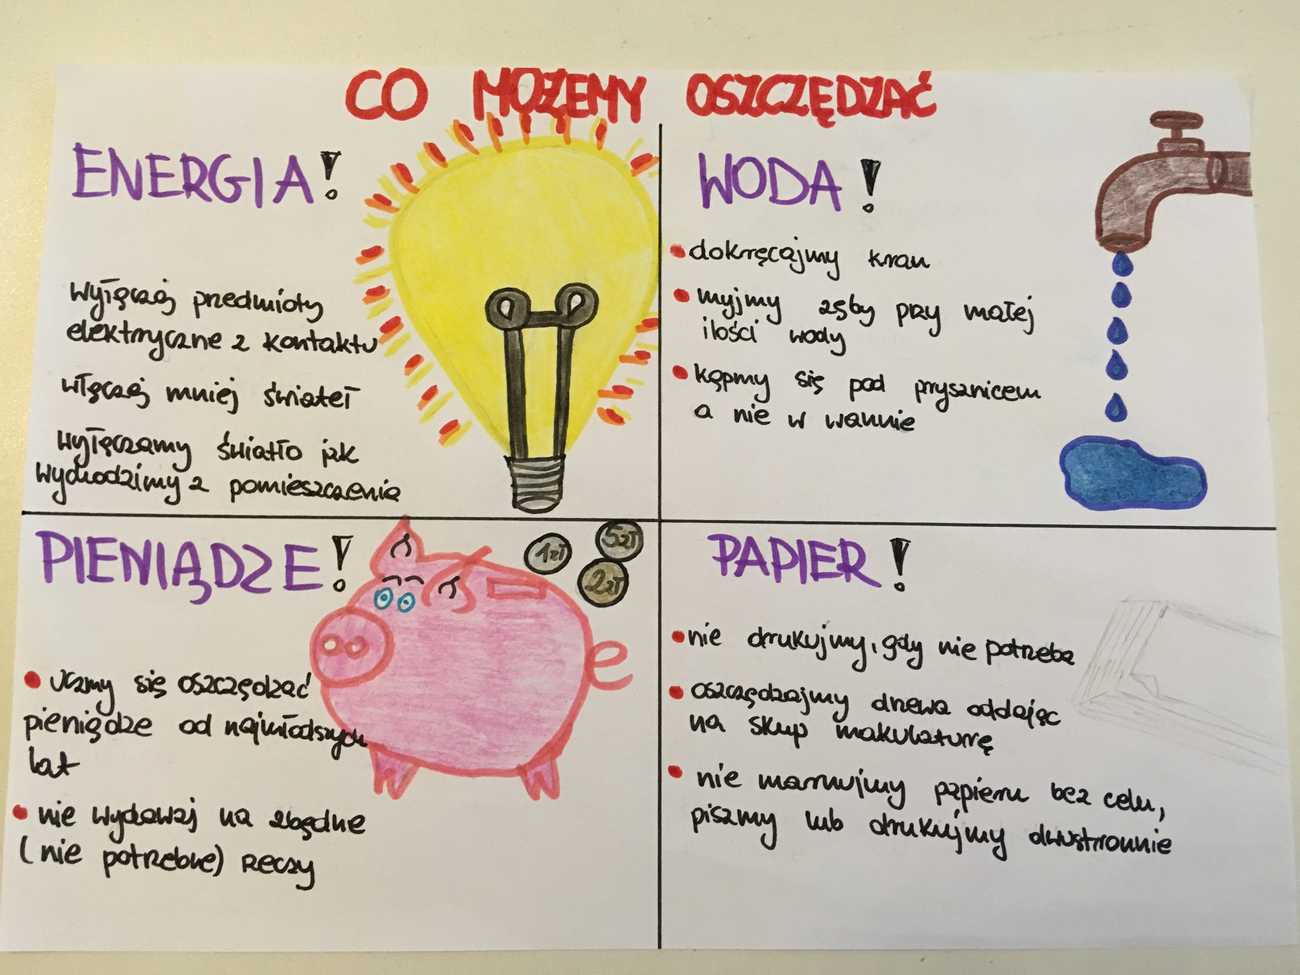 CO MOŻEMY OSZCZĘDZAĆ
ENERGIA!
Wyłączaj przedmioty
elektryczne z kontaktu
włączaj mniej świateł
wyłączamy światło jak
wychodzimy z pomieszczenia
WODA!
dokręcajmy kran
myjmy zęby przy małej
ilości wody
kąpmy się pod prysznicem
a nie w wannie
PIENIĄDZE!
1zł
5zł
2zł
uczmy się oszczędzać
pieniądze od najmłodszych
lat
nie wydawaj na zbędne
(nie potrzebne) rzeczy
PAPIER!
nie drukujmy, gdy nie potrzeba
oszczędzajmy drzewa oddając
na skup makulaturę
nie marnujmy papieru bez celu,
piszmy lub drukujmy dwustronnie